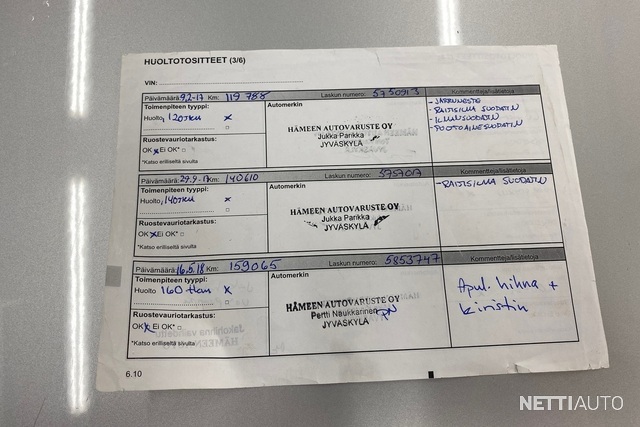 HUOLTOTOSITTEET (3/6)
VIN:
Päivämäärä: 9.2-17 Km: 119 788 Laskun numero: 5750913 Kommentteja/lisätietoja
Toimenpiteen tyyppi: Automerkin
Huolto, 120tkm x
HÄMEEN AUTOVARUSTE OY
Jukka Parikka
JYVÄSKYLÄ
- JARRUNESTE
- RAITISILMA SUODATIN
- ILMANSUODATIN
- POLTTOAINESUODATIN
Ruostevauriotarkastus:
OK x Ei OK* □
*Katso erilliseltä sivulta
Päivämäärä: 29.9-17 Km: 140610 Laskun numero: Kommentteja/lisätietoja
Toimenpiteen tyyppi: Automerkin
Huolto, 140tkm x
HÄMEEN AUTOVARUSTE OY
Jukka Parikka
JYVÄSKYLÄ
- RAITISILMA SUODATIN
Ruostevauriotarkastus:
OK x Ei OK* □
*Katso erilliseltä sivulta
Päivämäärä: 16.5.18 Km: 159065 Laskun numero: 5853747 Kommentteja/lisätietoja
Toimenpiteen tyyppi: Automerkin
Huolto 160 tkm x
HÄMEEN AUTOVARUSTE OY
Pertti Naukkarinen
JYVÄSKYLÄ
Apul. hihna +
kiristin
Ruostevauriotarkastus:
OK x Ei OK* □
*Katso erilliseltä sivulta
6.10
NETTIAUTO